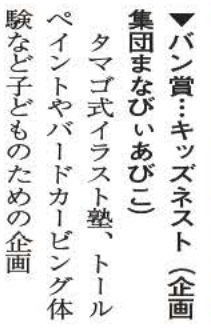 ▼バン賞…キッズネスト（企画
集団まなびぃあびこ）
タマゴ式イラスト塾、トール
ペイントやバードカービング体
験など子どものための企画